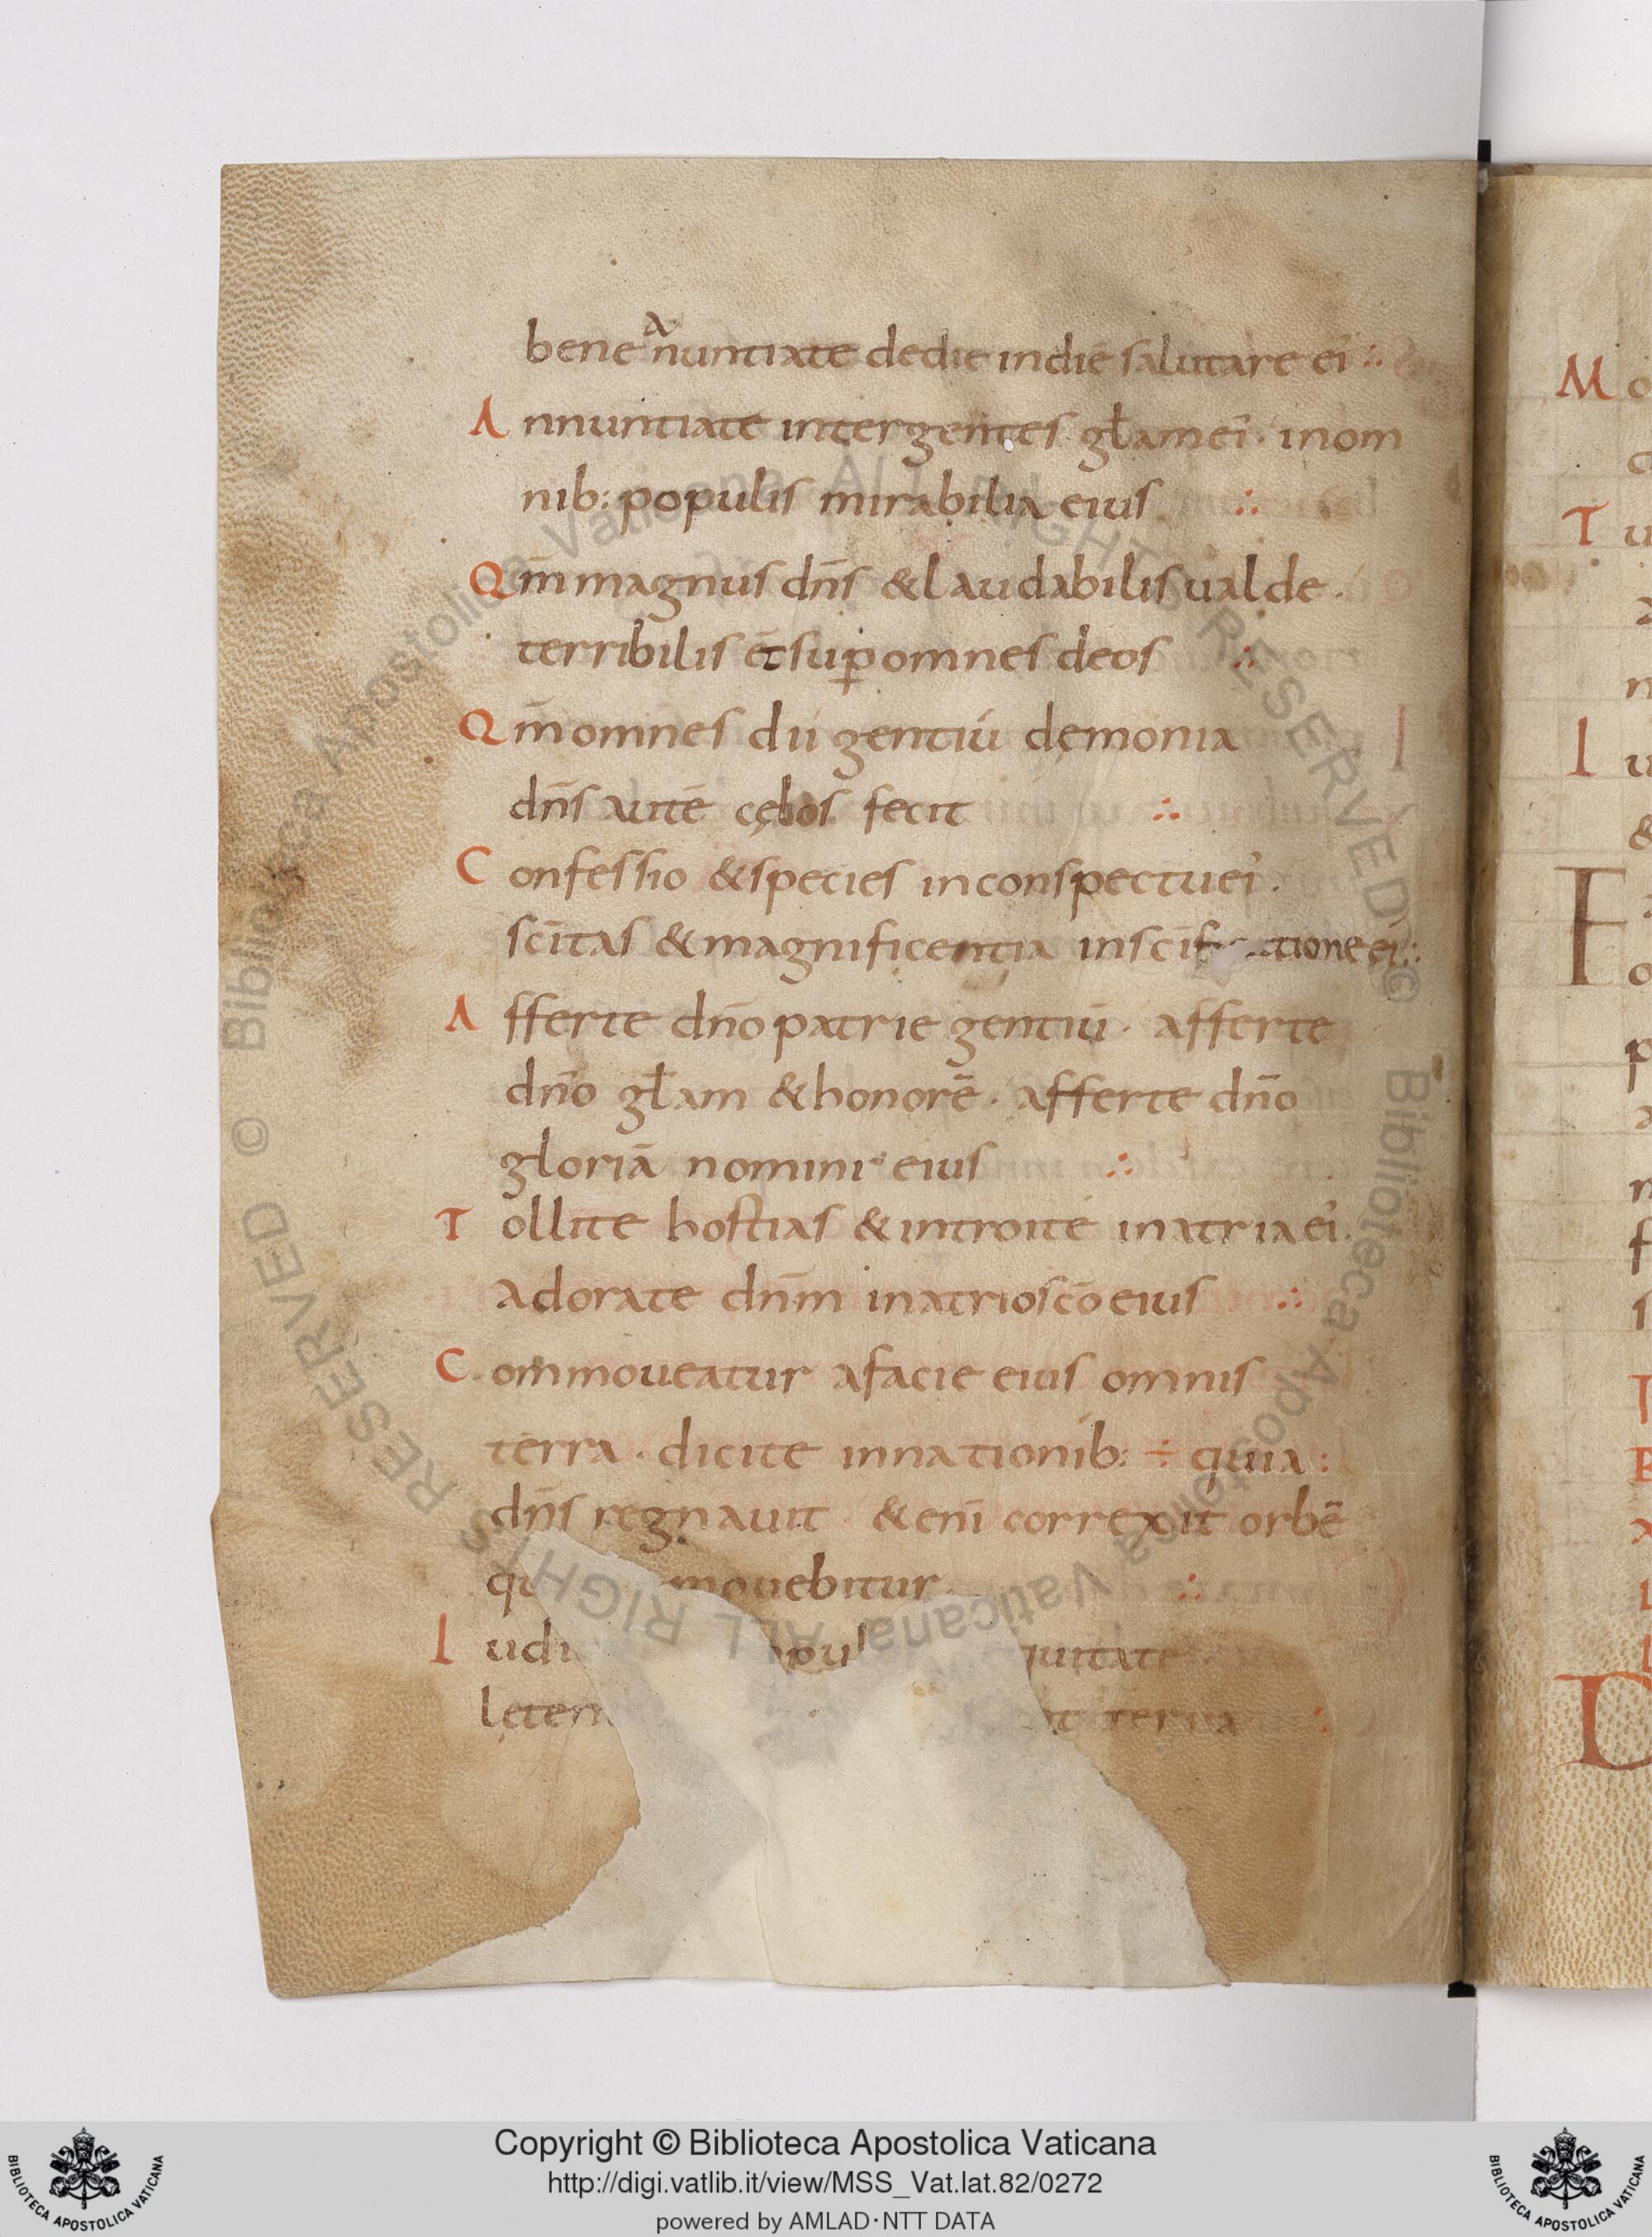 bene ^a nuntiate dedie indie salutare ei' ∴
Annuntiate inter gentes gl̄am ei' · in om
nib: populis mirabilia eius ∴
Qm̄ magnus dn̄s & laudabilis ualde ·
terribilis ē sup̄ omnes deos ∴
Qm̄ omnes dii gentiū dęmonia
dn̄s autē cęlos fecit ∴
Confessio & species in conspectu ei' ·
sc̄itas & magnificentia in sc̄if ationeei' :
Afferte dn̄o patrie gentiū · afferte
dn̄o gl̄am & honorē · afferte dn̄o
gloriā nomini eius ∴
Tollite hostias & introite in atria ei' ·
adorate dn̄m in atrio sc̄o eius ∴
Commoueatur a facie eius omnis
terra · dicite in nationib: ÷ quia :
dn̄s regnauit · & enī correxit orbē
qu mouebitur ∴
Iudi pul quitate
lęten t terra ∴
M
T
I
F
D
Copyright © Biblioteca Apostolica Vaticana
http://digi.vatlib.it/view/MSS_Vat.lat.82/0272
powered by AMLAD·NTT DATA
BIBLIOTECA APOSTOLICA VATICANA
BIBLIOTECA APOSTOLICA VATICANA
© Biblioteca Apostolica Vaticana ALL RIGHTS RESERVED © Biblioteca Apostolica Vaticana ALL RIGHTS RESERVED